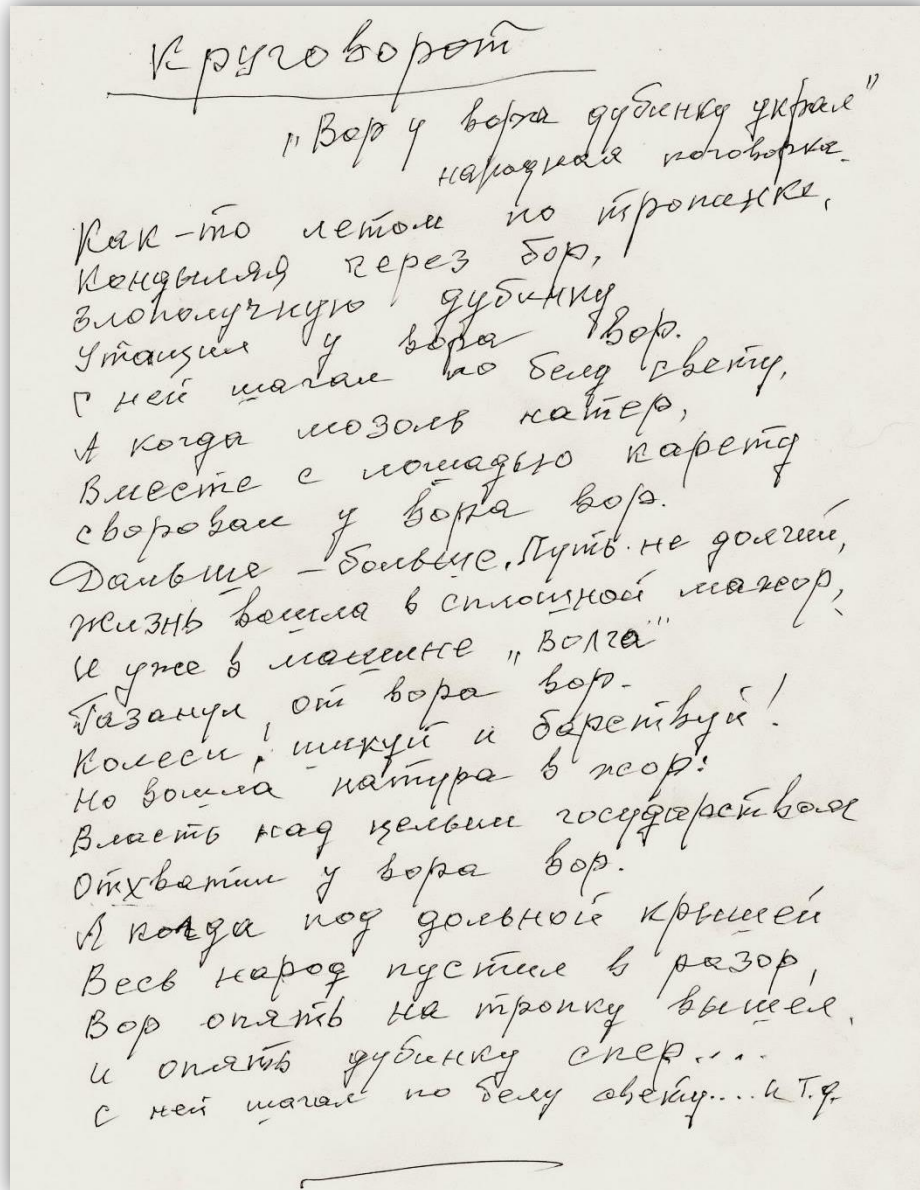 Круговорот
„Вор у вора дубинку украл"
народная поговорка.
Как-то летом по тропинке,
Кондыляя через бор,
Злополучную дубинку
Утащил у вора вор.
С ней шагал по белу свету,
А когда мозоль натер,
Вместе с лошадью карету
своровал у вора вор.
Дальше – больше. Путь не долгий,
жизнь вошла в сплошной мажор,
И уже в машине „Волга"
Газанул от вора вор.
Колеси! шикуй и барствуй!
Но вошла натура в жор:
Власть над целым государством
Отхватил у вора вор.
А когда под дольной крышей
Весь народ пустил в разор,
Вор опять на тропку вышел,
и опять дубинку спер....
с ней шагал по белу свету.... и т.д.